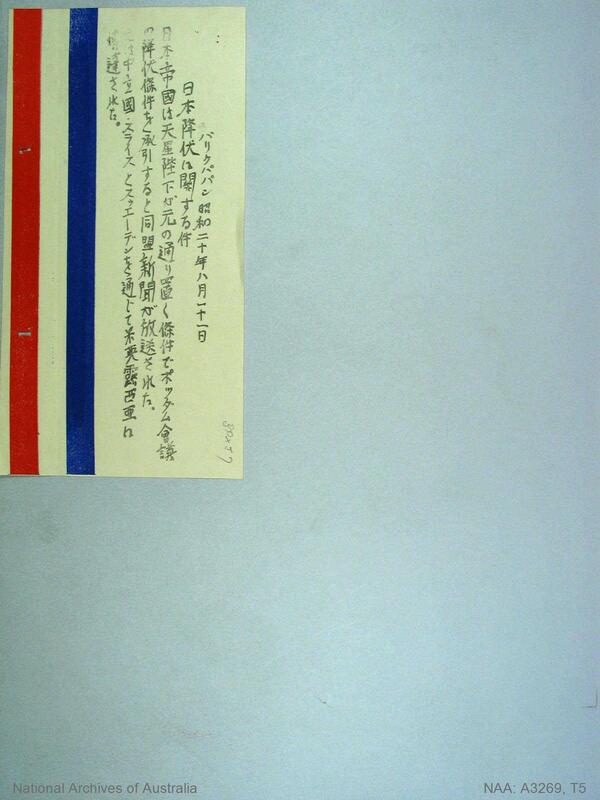 バリクパパン 昭和二十年八月十一日
日本降伏に関する件
日本帝國は天星陛下が元の通り置く條件でポツダム會議
の降伏條件を承引すると同盟新聞が放送された。
中立國・スライスとスウエーデンを通じて米英露西亜に
達された。
National Archives of Australia
NAA: A3269, T5